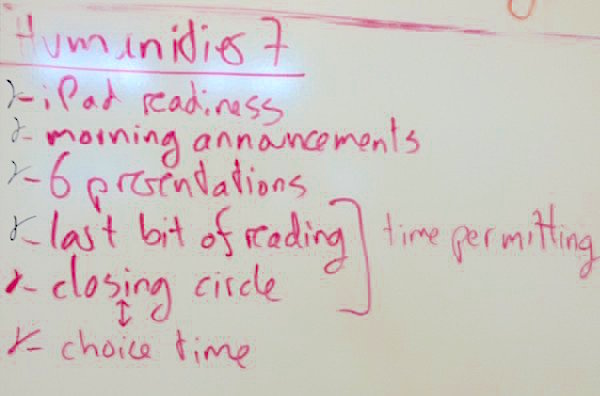 Humanidies 7
- iPad readiness
- morning annancements
- 6 presentations
- last bit of reading
- closing circle
time permitting
↕
- choice time